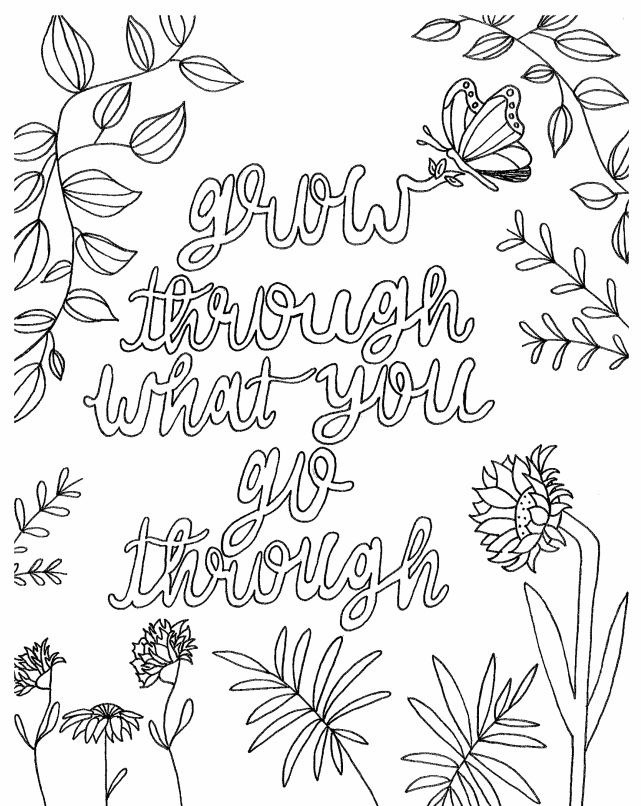 grow
through
what you
go
through